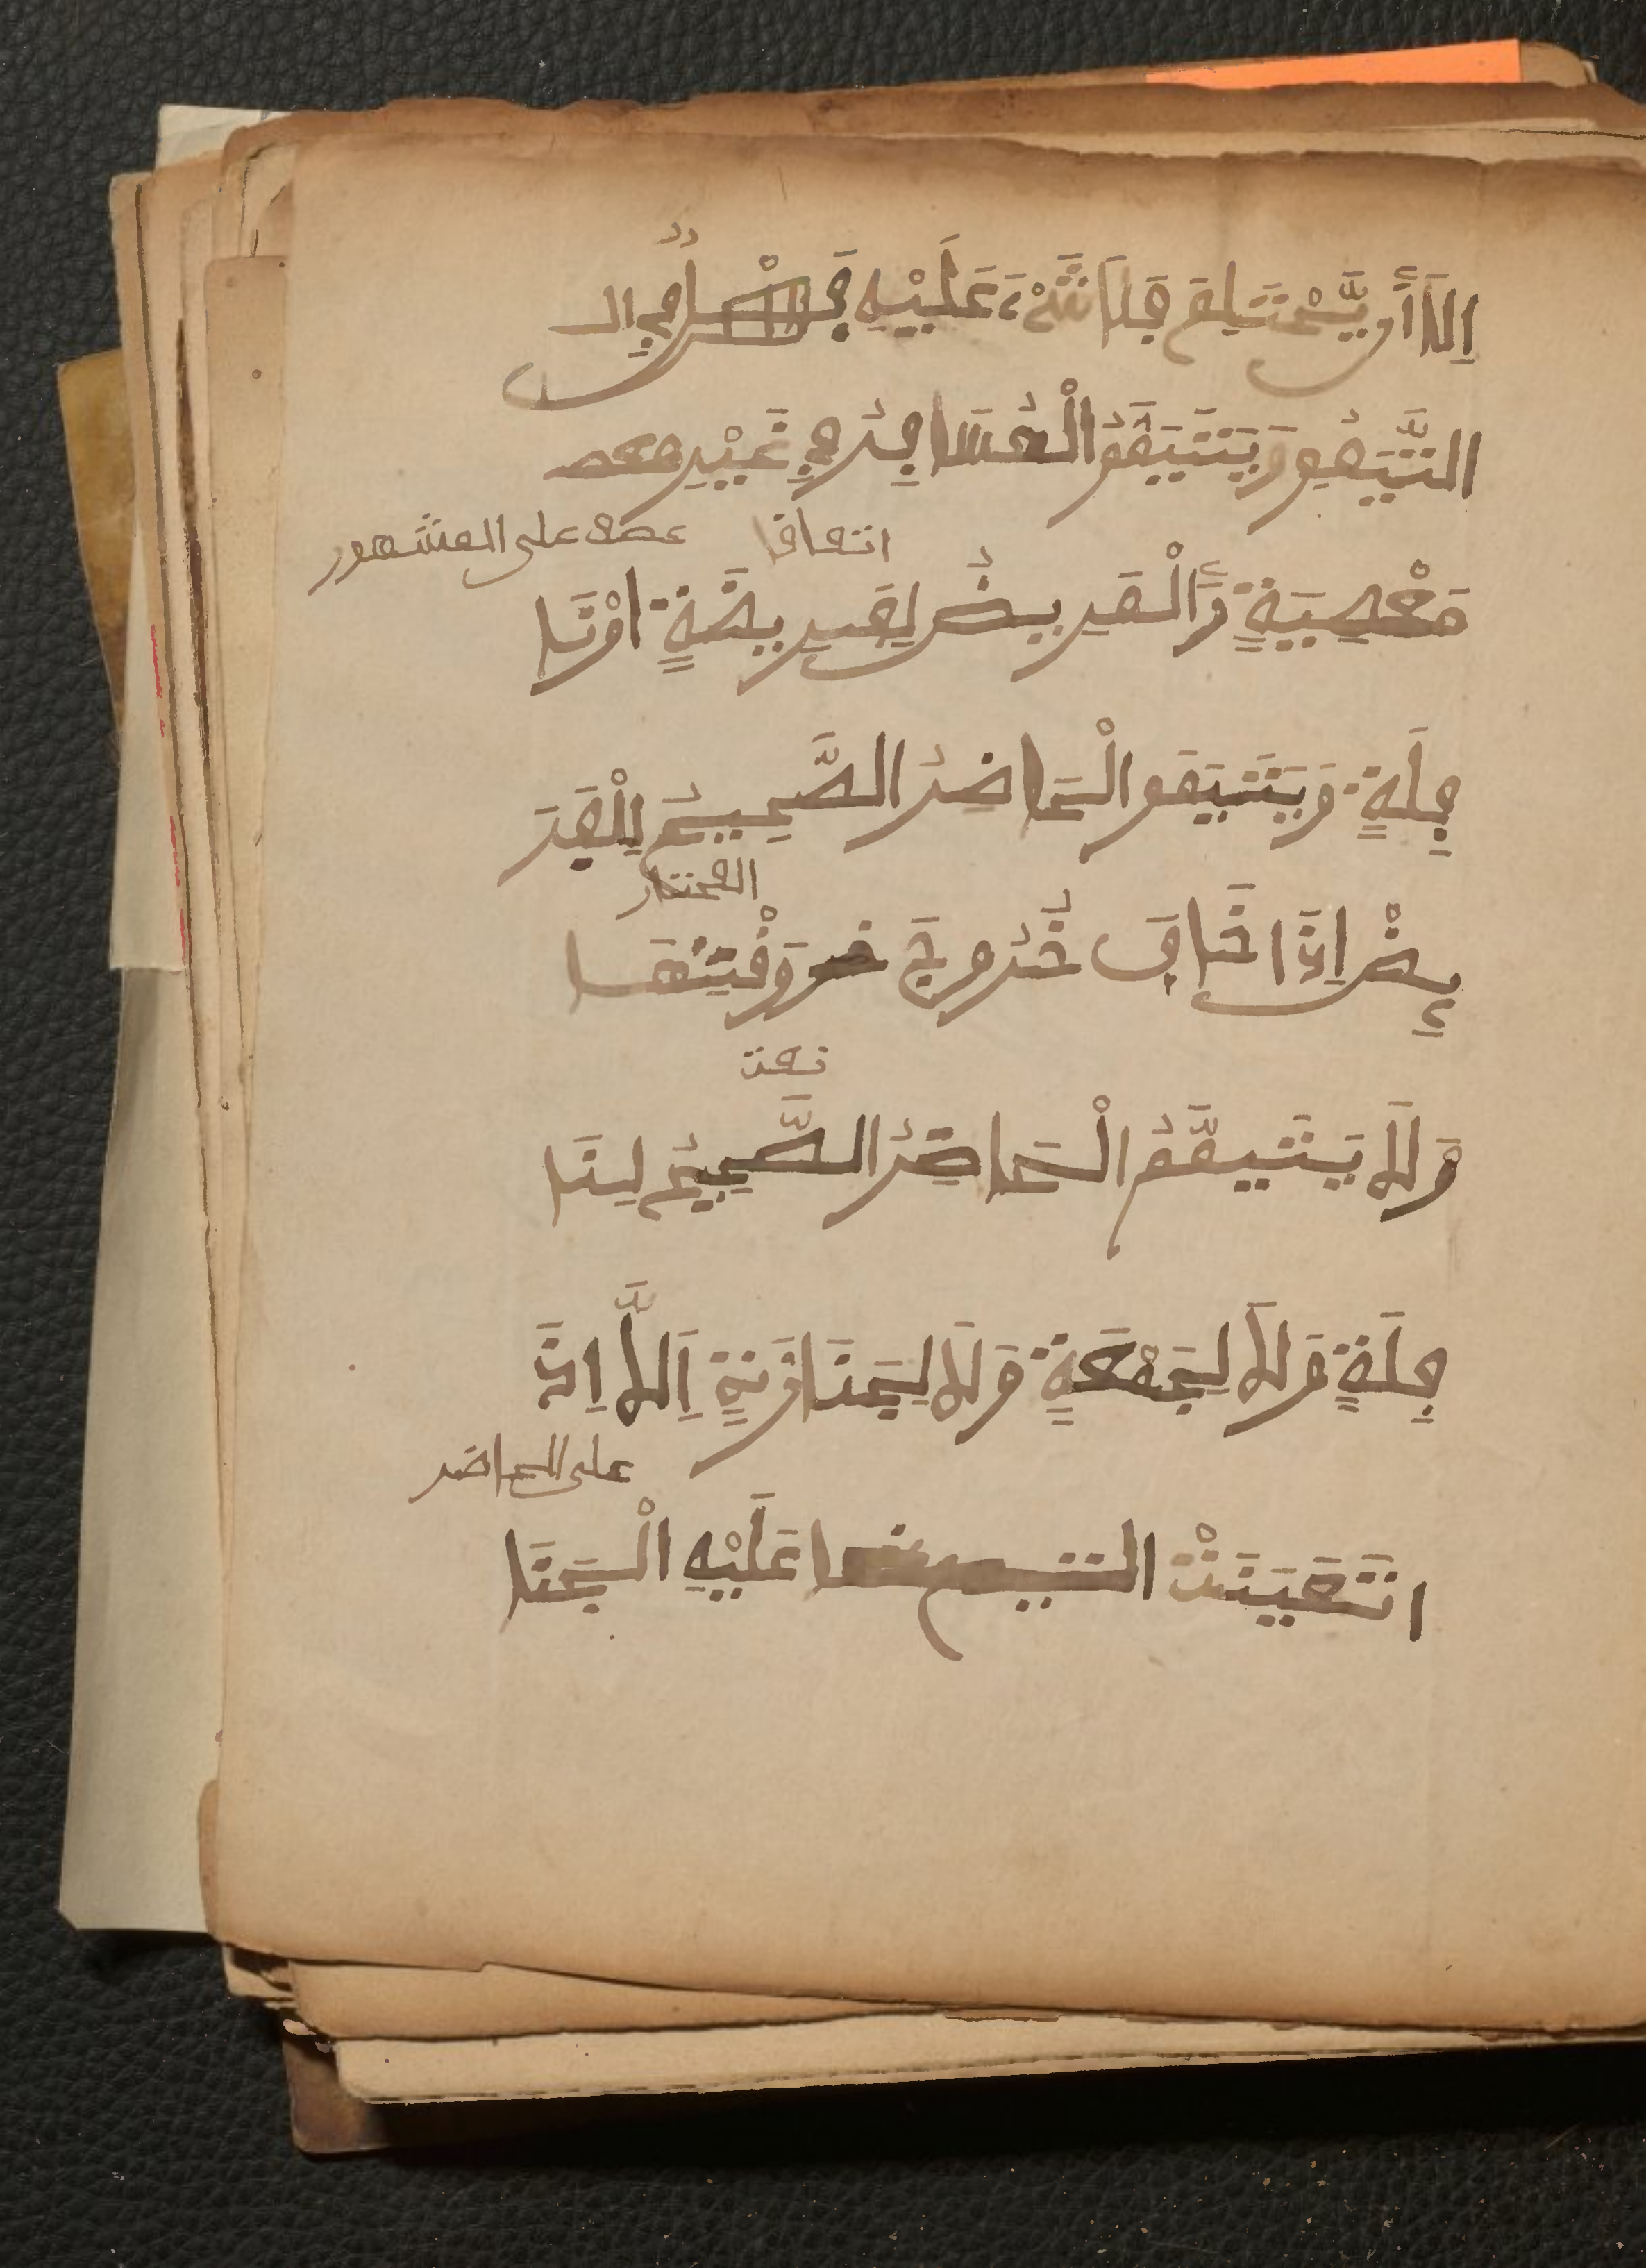 اِلَّا أَن يَّحْتَلِمَ فَلَا شَيْءَ عَلَيْهِ فَصْلٌ فِي ا
التَّيَمُّمِ وَيَتَيَمَّمُ الْمُسَافِرُ فِي غَيْرِ معص
اتفاقا عصى على المشهور
مَعْصِيَةٍ وَالْمَرِيضُ لِفَرِيضَةٍ اوْنَا
فِلَةٍ وَيَتَيَمَّمُ الْحَاضِرُ الصَّحِيحُ لِلْفَرَ
المختار
ئِضِ اِذَا خَافَ خُرُوجَ وَقْتِهَا
نعت
وَلَا يَتَيَمَّمُ الْحَاضِرُ الصَّحِيحُ لِنَا
فِلَةٍ وَلَا لِجُمْعَةٍ وَلَا لِجَنَازَةٍ اِلَّا اِذَا
على الحاضر
اتَعَيَنَتْ عَلَيْهِ الْجَنَا